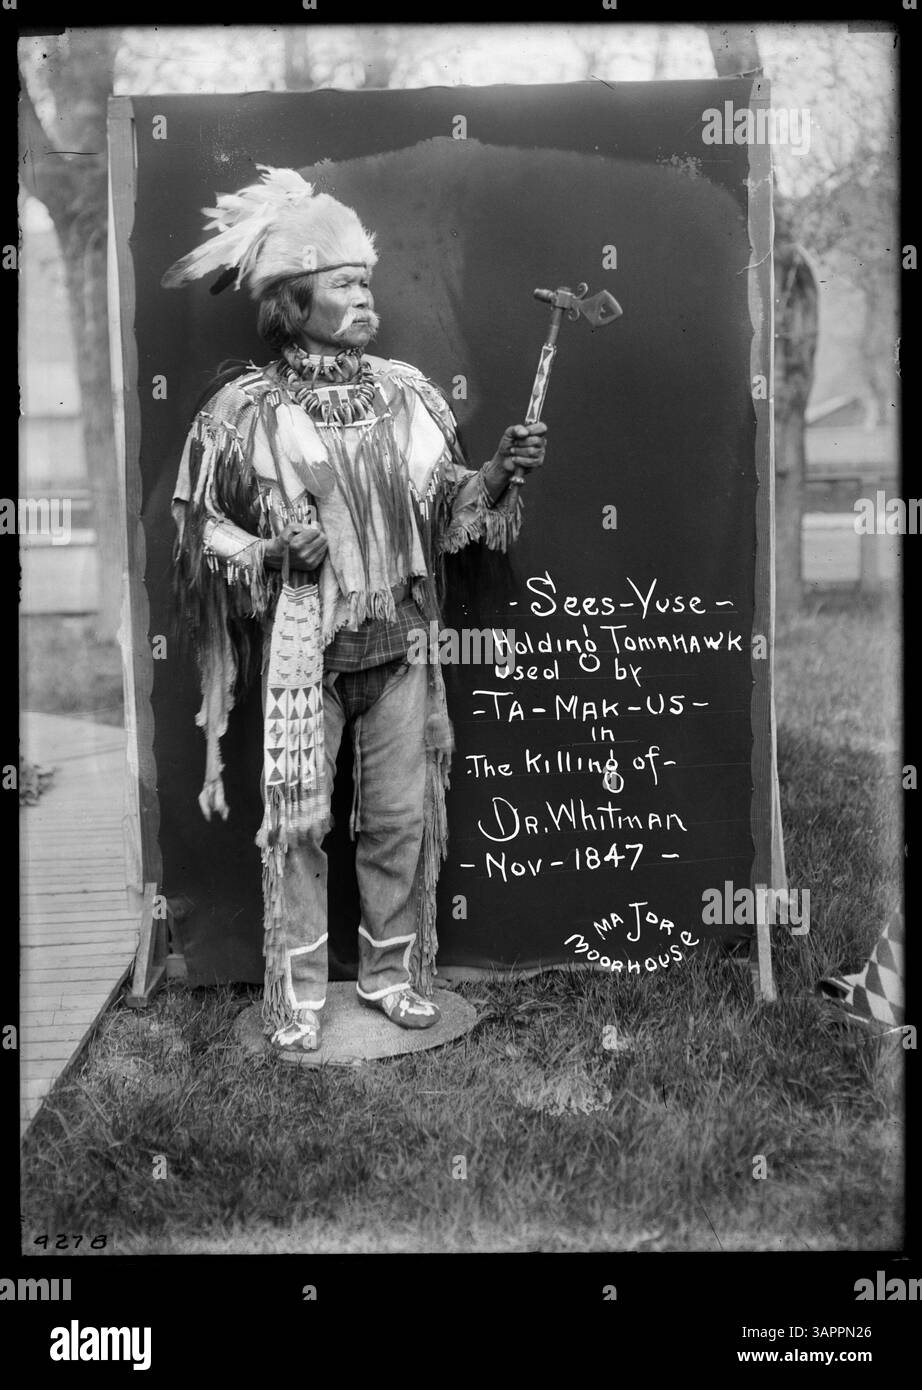 alamy
- Sees-Yuse -
Holding Tomahawk
used by
- TA - MAK - US -
in
- The Killing of -
DR. Whitman
- Nov - 1847 -
MAJOR
MOORHOUSE
9278
alamy
Image ID: 3APPN26
www.alamy.com